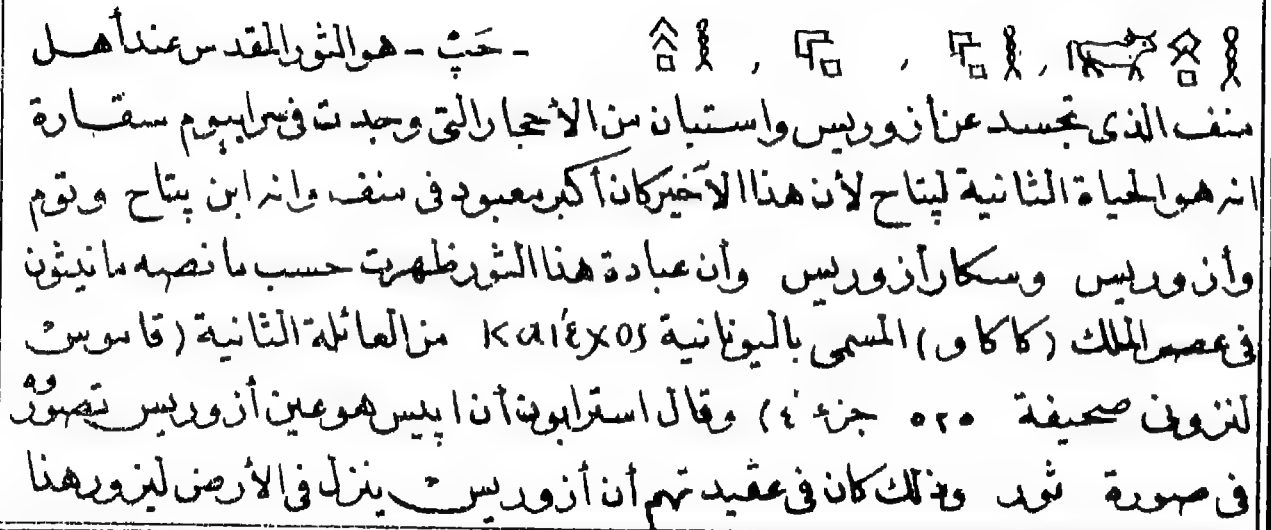 - حَپْ - هو الثور المقدس عند أهل
منف الذى تجسد عن أزوريس واستبان من الأحجار التى وجدت فى سرابيوم سقارة
انه هو الحياة الثانية لپتاح لأن هذا الأخير كان أكبر معبود فى منف وانه ابن پتاح وتوم
وأزوريس وسكار أزوريس وأن عبادة هذا الثور ظهرت حسب ما نصه مانيثون
فى عصر الملك (كاكاو) المسمى باليونانية Καιέχος من العائلة الثانية (قاموس
لنزونى صحيفة ٥٢٥ جزء ٤) وقال استرابون أن اپيس هو عين أزوريس تصوروه
فى صورة ثور وذلك كان فى عقيدتهم أن أزوريس ينزل فى الأرض ليزور هنا